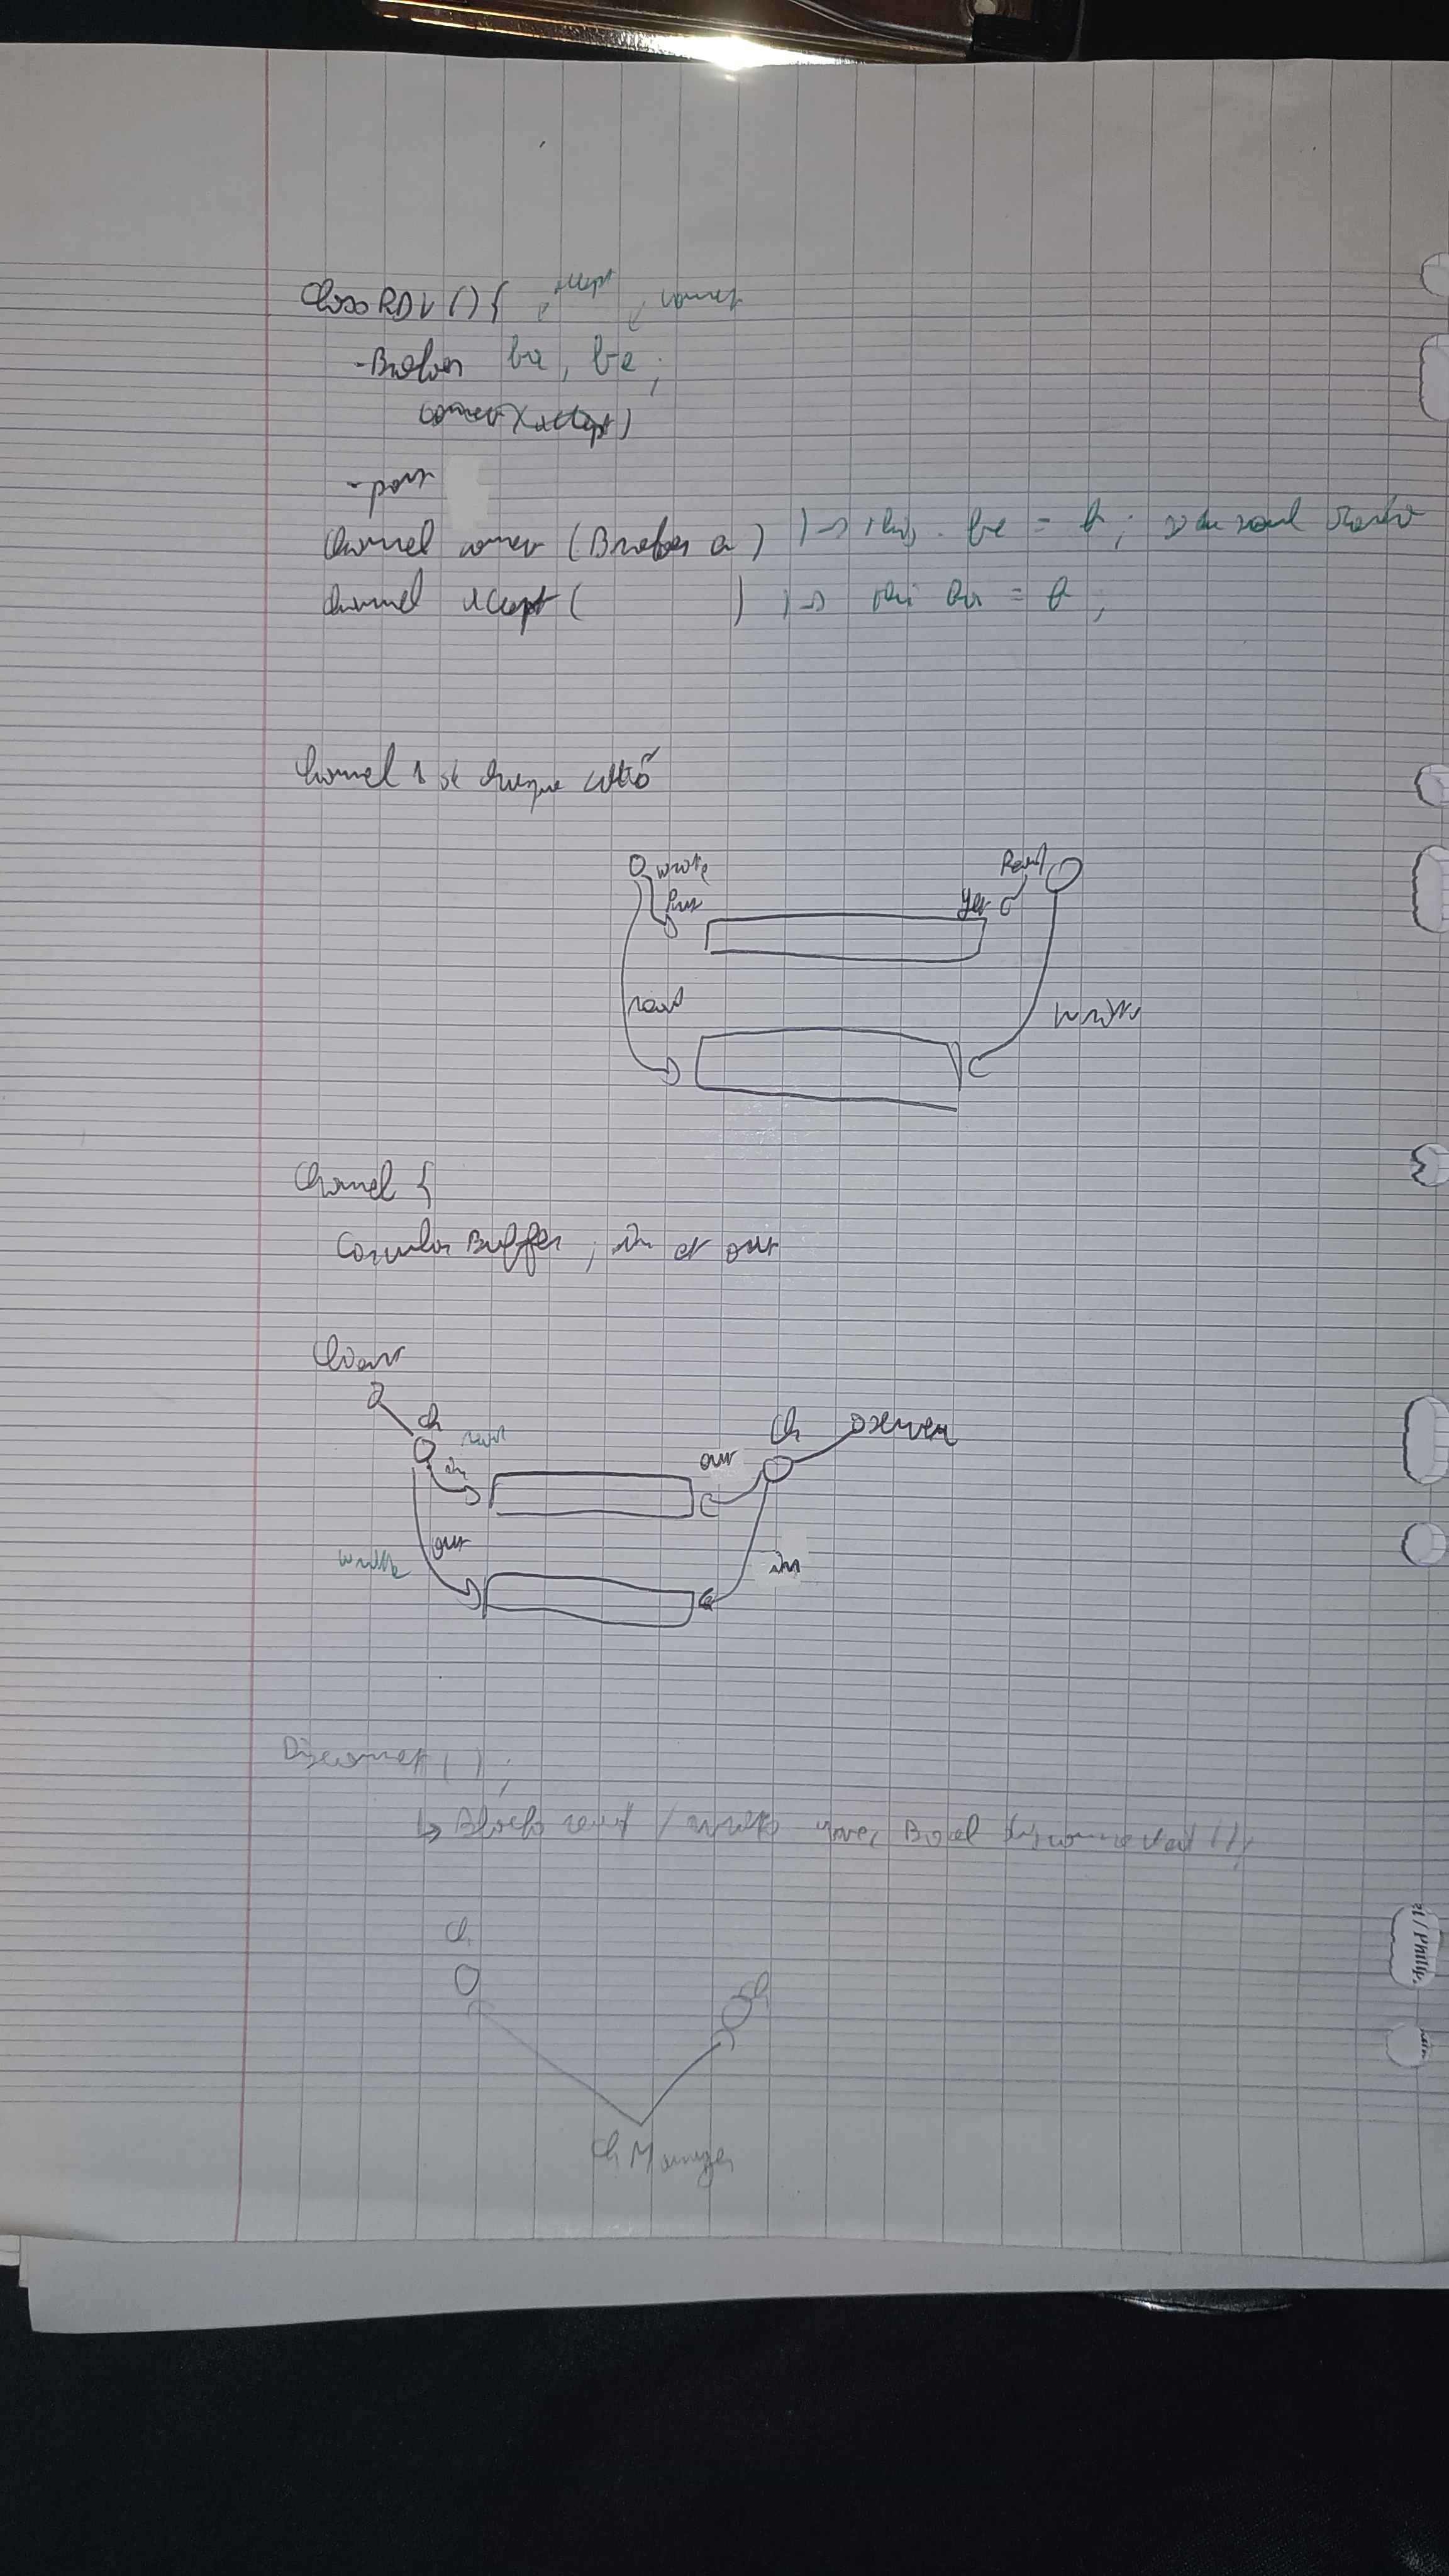 Class RDV () { accept connect
- Broker ba, bc ;
connect accept)
- port
Channel connect (Broker a) |-> this. bc = b ;
Channel accept ( ) |-> this ba = b ;
Channel 1 de chaque côté
write Read
Put get
read write
Channel {
Circular Buffer ; in et out
Client
ch read Ch server
in out
write out in
Disconnect () ;
↳ Block read / write avec Bool disconnected () ;
Ch
Ch
Ch Manager